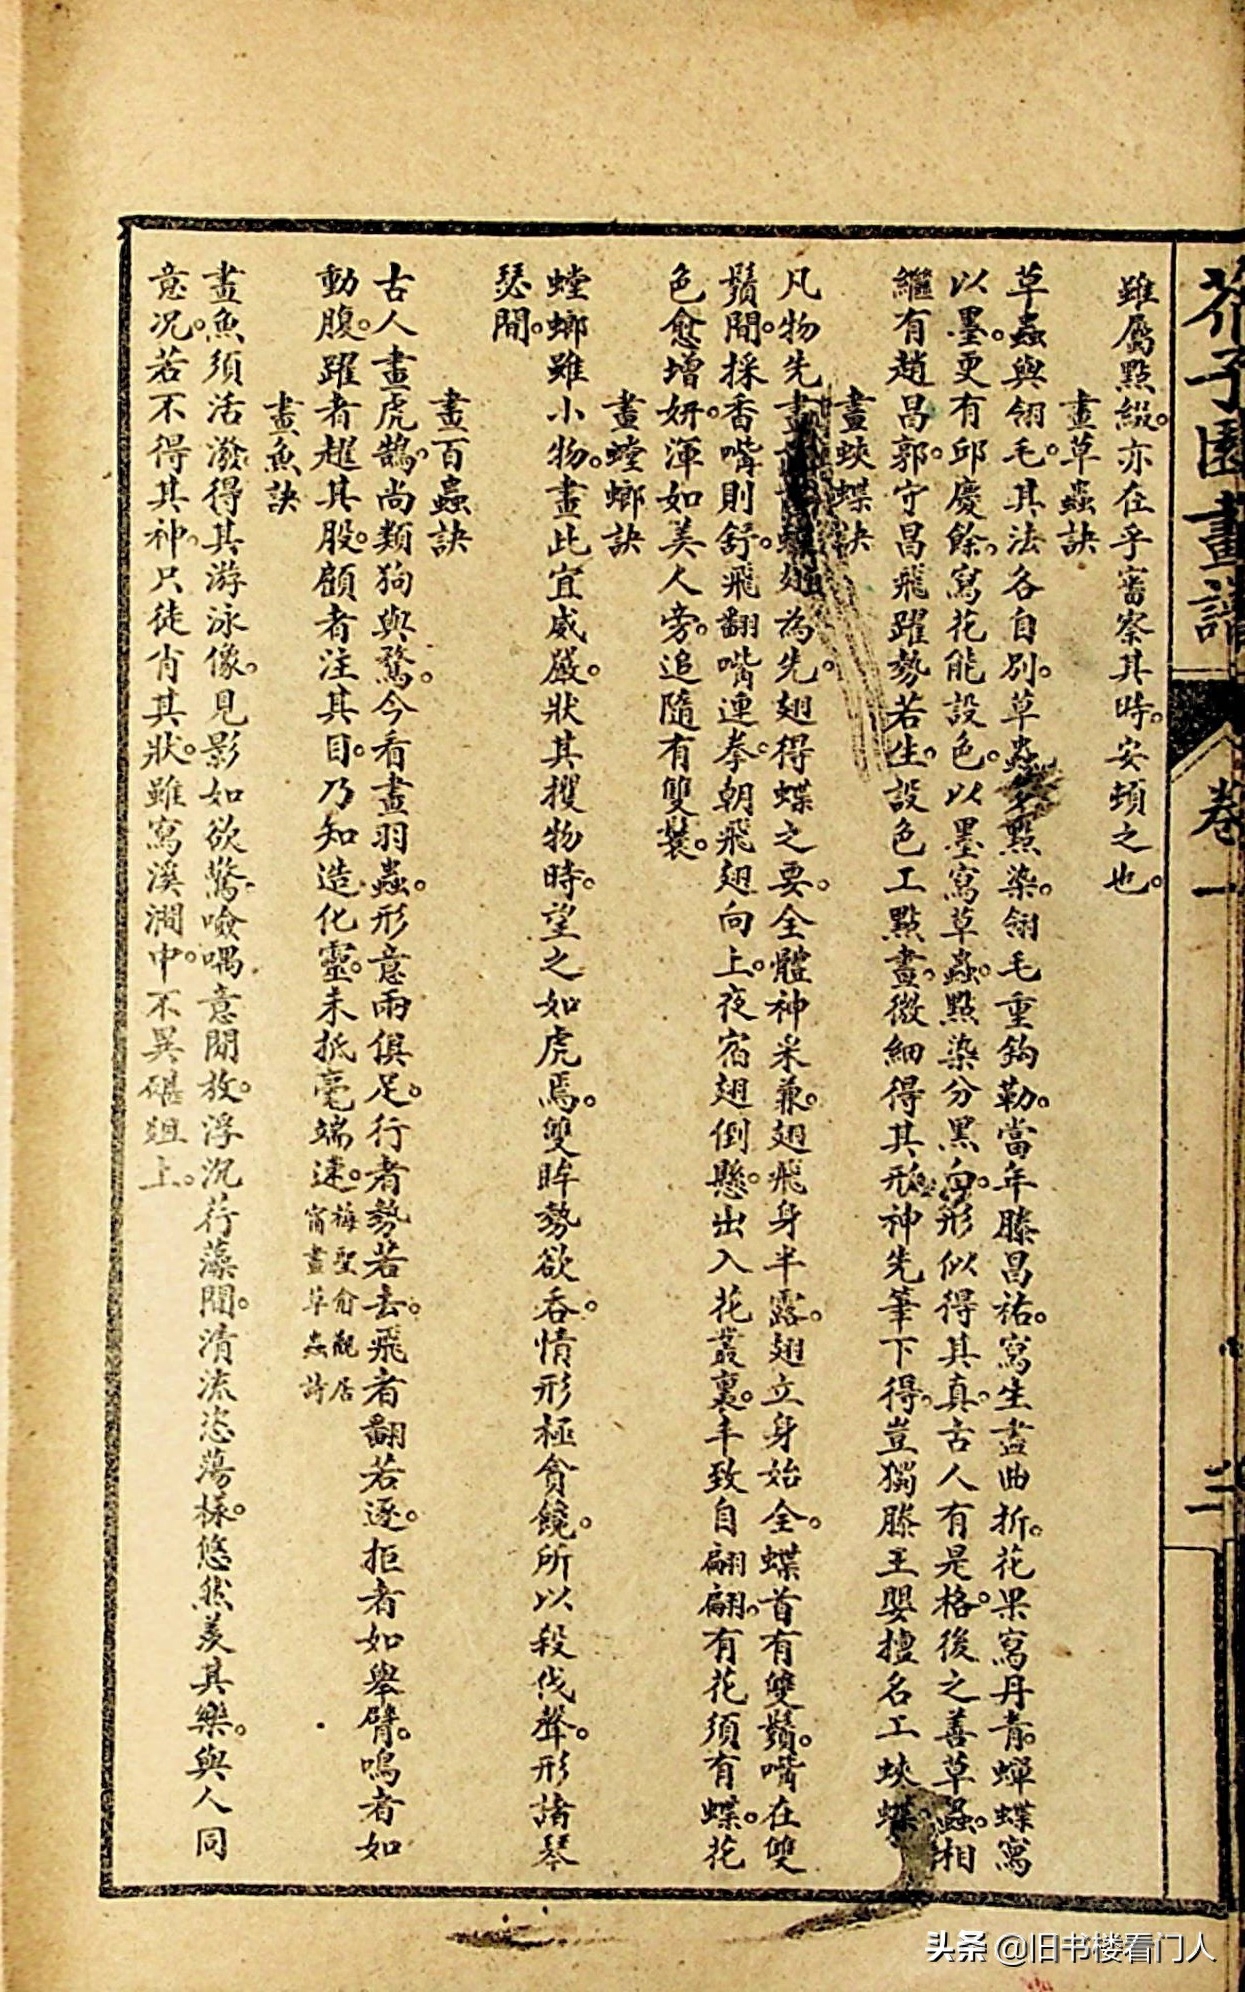 芥子園畫譜
卷一
二
雖屬點綴。亦在乎審察其時。安頓之也。
畫草蟲訣
草蟲與翎毛。其法各自別。草蟲多點染。翎毛重鈎勒。當年滕昌祐。寫生盡曲折。花果寫丹青。蟬蝶寫
以墨。更有邱慶餘。寫花能設色。以墨寫草蟲。點染分黑白。形似得其真。古人有是格。後之善草蟲。相
繼有趙昌。郭守昌飛躍勢若生。設色工點畫。微細得其形。神先筆下得。豈獨滕王嬰。擅名工蛺蝶。
畫蛺蝶訣
凡物先畫 翅為先。翅得蝶之要。全體神采兼。翅飛身半露。翅立身始全。蝶首有雙鬚。嘴在雙
鬚間。採香嘴則舒。飛翻嘴連拳。朝飛翅向上。夜宿翅倒懸。出入花叢裏。丰致自翩翩。有花須有蝶。花
色愈增妍。渾如美人旁。追隨有雙鬟。
畫螳螂訣
螳螂雖小物。畫此宜威嚴。狀其攫物時。望之如虎焉。雙眸勢欲吞。情形極貪饞。所以殺伐聲。形諸琴
瑟間。
畫百蟲訣
古人畫虎鵠。尚類狗與鶩。今看畫羽蟲。形意兩俱足。行者勢若去。飛者翻若逐。拒者如舉臂。鳴者如
動腹。躍者趯其股。顧者注其目。乃知造化靈。未抵毫端速。梅聖俞觀居
甯畫草蟲詩
畫魚訣
畫魚須活潑。得其游泳像。見影如欲驚。噞喁意閒放。浮沉荇藻間。清流恣蕩樣。悠然羡其樂。與人同
意況。若不得其神。只徒肖其狀。雖寫溪澗中。不異碪俎上。
头条 @旧书楼看门人